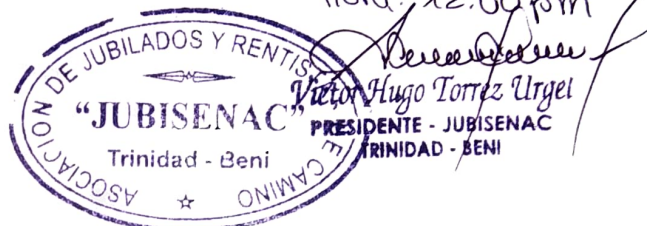 Hora: 12:00 pm
ASOCIACION DE JUBILADOS Y RENTIS
E CAMINO
"JUBISENAC"
Trinidad - Beni
Victor Hugo Torrez Urgel
PRESIDENTE - JUBISENAC
TRINIDAD - BENI